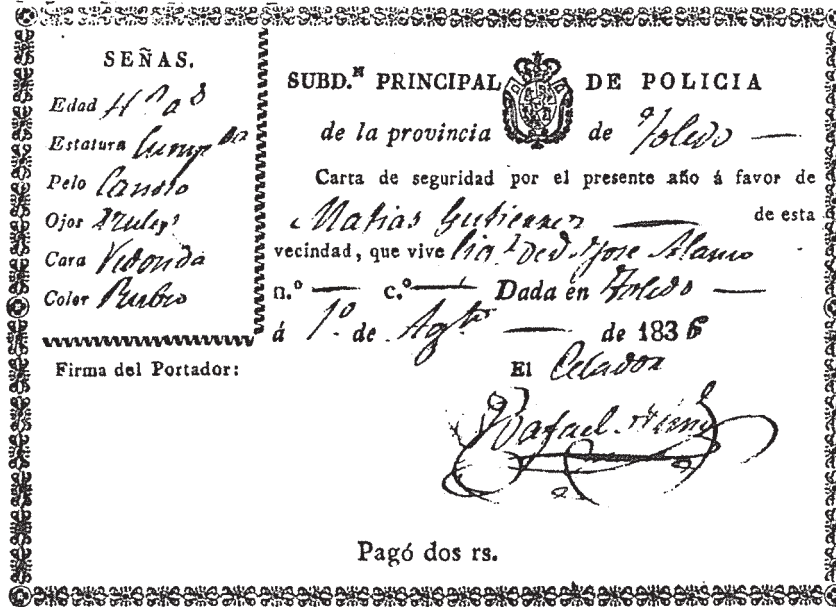 SEÑAS.
Edad 4
Estatura Cump
Pelo Canoso
Ojos Azules
Cara Redonda
Color Rubio
Firma del Portador:
SUBD.ᴺ PRINCIPAL DE POLICIA
de la provincia de Toledo
Carta de seguridad por el presente año á favor de
Matias Gutierrez de esta
vecindad, que vive José Alamo
n.º c.º Dada en Toledo
á 1º de Agto de 1836
El Celador
Rafael
Pagó dos rs.